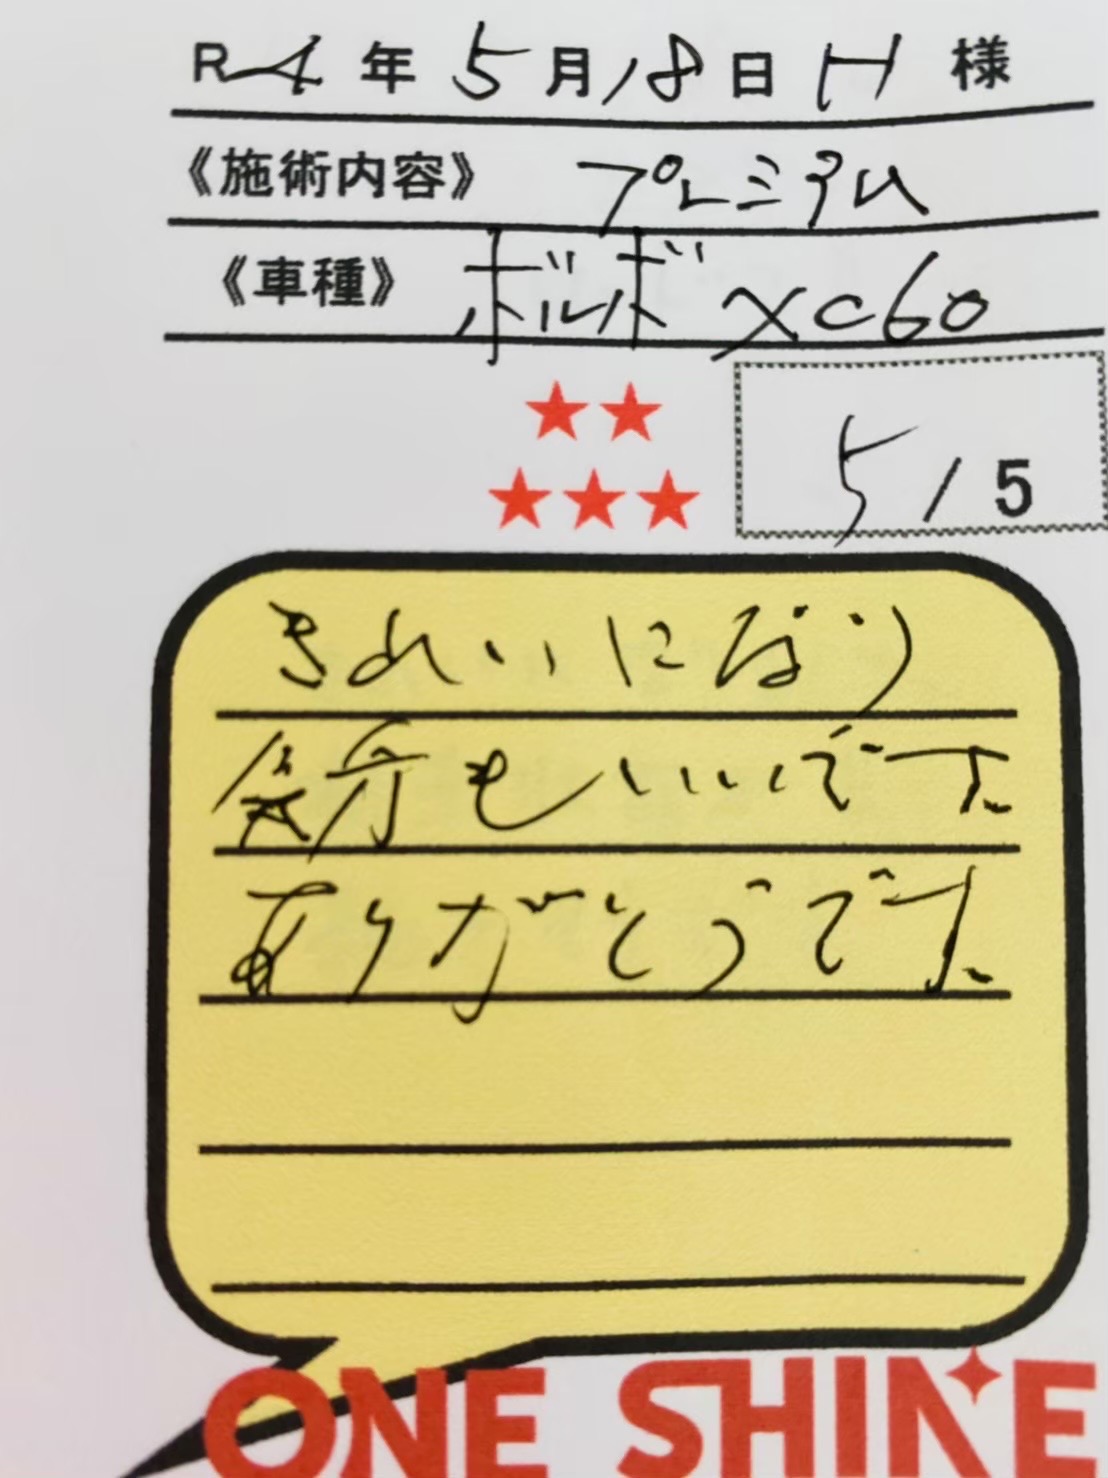 R4年5月18日 H 様
《施術内容》 プレミアム
《車種》 ボルボ XC60
★★
★★★
5/5
きれいになり
気分もいいです
ありがとうです
ONE SHINE